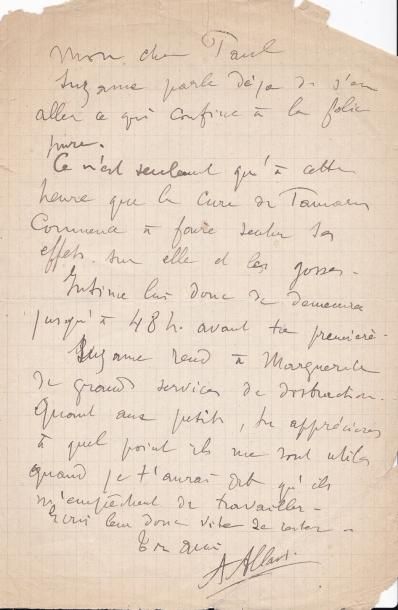 Mon cher Paul
Suzanne parle déjà de s'en
aller ce qui confine à la folie
pure.
Ce n'est seulement qu'à cette
heure que la cure de Tamaris
Commence à faire sentir ses
effets sur elle et les gosses.
Intime lui donc de demeurer
jusqu'à 48 h. avant ta première.
Suzanne rend à Marguerite
de grands services de distraction.
Quant aux petits, tu apprécieras
à quel point ils me sont utiles
quand je t'aurai dit qu'ils
m'empêchent de travailler.
Ecris leur donc vite de rester.
Ton ami
A Allais.